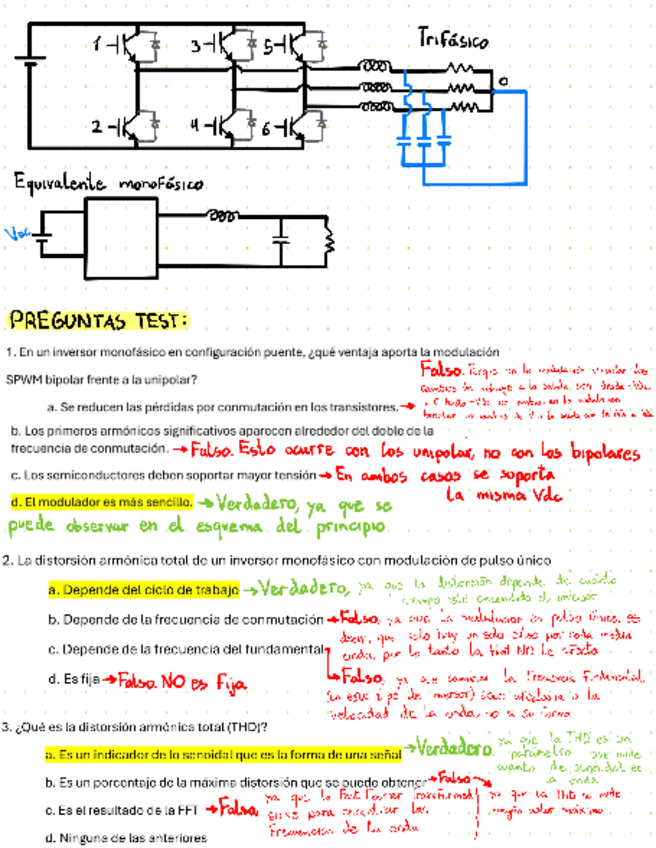 Trifásico
1
3
5
2
4
6
0
Equivalente monofásico
Vdc
PREGUNTAS TEST:
1. En un inversor monofásico en configuración puente, ¿qué ventaja aporta la modulación
SPWM bipolar frente a la unipolar?
Falso. Porque en la modulación
a. Se reducen las pérdidas por conmutación en los transistores. →
b. Los primeros armónicos significativos aparecen alrededor del doble de la
frecuencia de conmutación. → Falso. Esto ocurre con los unipolar, no con los bipolares
c. Los semiconductores deben soportar mayor tensión → En ambos casos se soporta
la misma Vdc
d. El modulador es más sencillo. → Verdadero, ya que se
puede observar en el esquema del principio.
2. La distorsión armónica total de un inversor monofásico con modulación de pulso único
a. Depende del ciclo de trabajo → Verdadero, ya que la distorsión depende de cuánto
tiempo está encendido el inversor
b. Depende de la frecuencia de conmutación → Falso, ya que la modulación en pulso único, es
decir, que solo hay un solo pulso por cada media
c. Depende de la frecuencia del fundamental
onda, por lo tanto la fsw NO le afecta
d. Es fija → Falso. NO es fija
→ Falso, ya que cambiar la frecuencia fundamental
velocidad de la onda, no a su forma
3. ¿Qué es la distorsión armónica total (THD)?
a. Es un indicador de lo senoidal que es la forma de una señal → Verdadero, ya que la THD es un
parámetro que mide
cuánto de senoidal es
la onda
b. Es un porcentaje de la máxima distorsión que se puede obtener → Falso →
ya que la THD no mide
ningún valor máximo
c. Es el resultado de la FFT → Falso, ya que la Fast Fourier Transformed
sirve para encontrar las
frecuencias de la onda
d. Ninguna de las anteriores